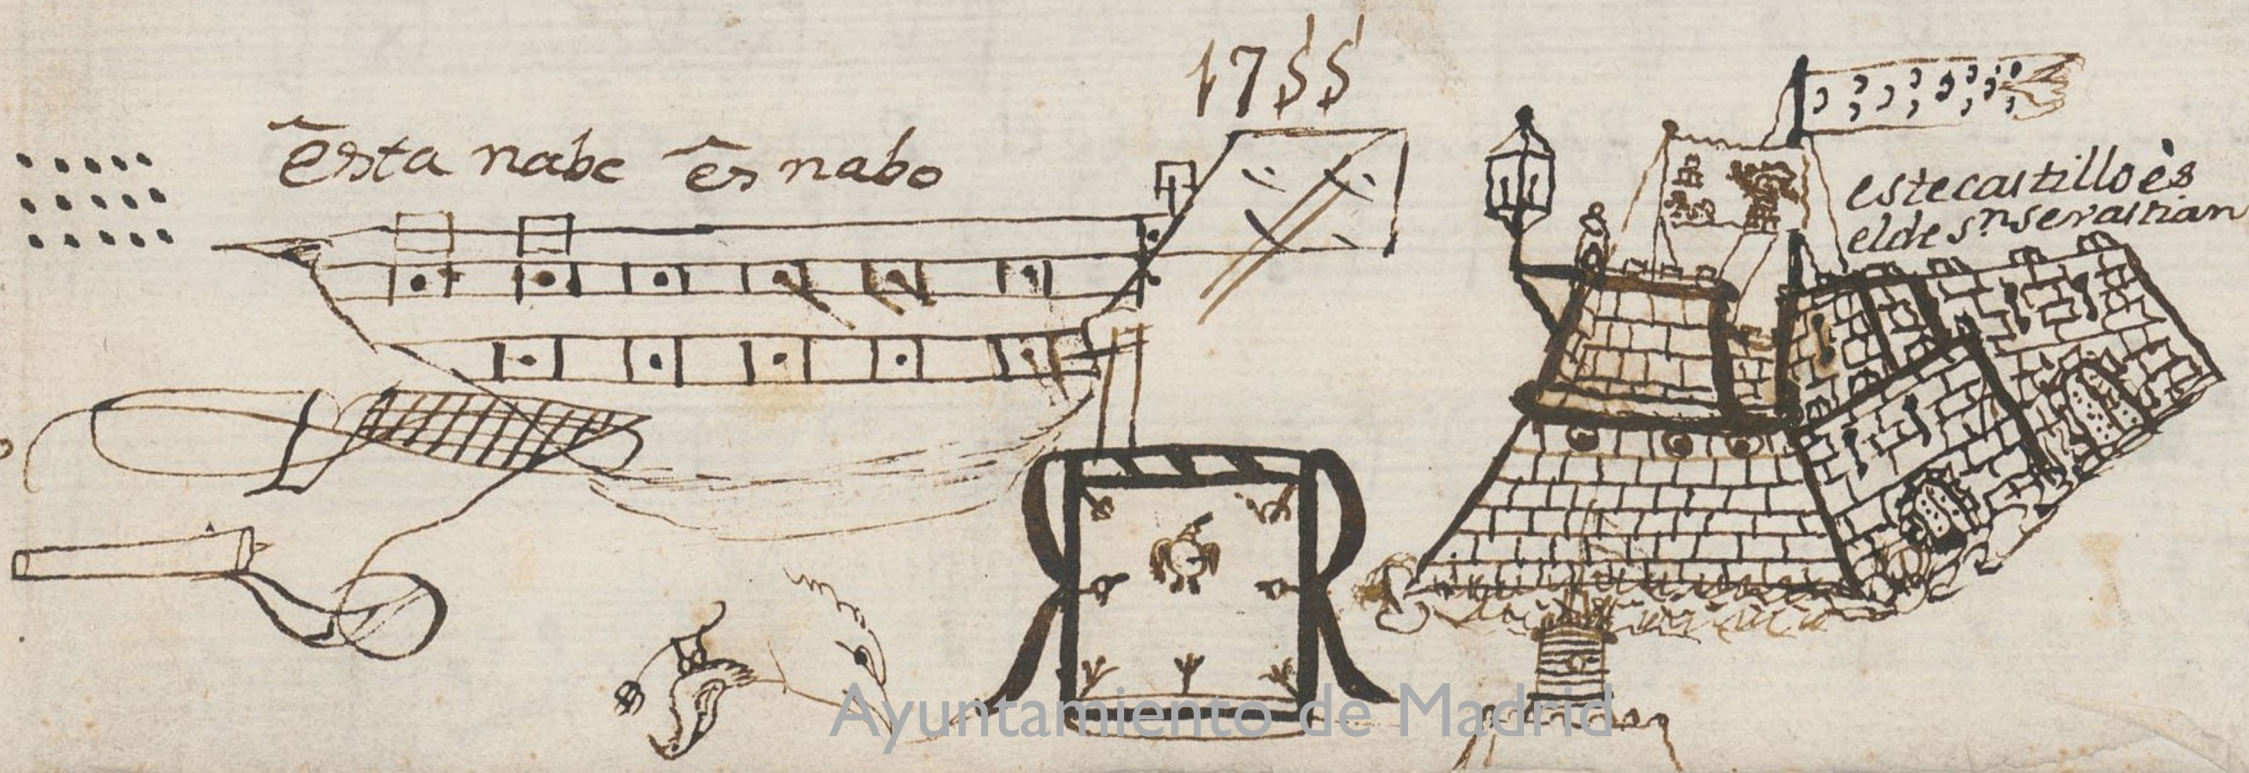 1755
esta nabe es nabo
este castillo ès
el de Sn sevastian
Ayuntamiento de Madrid